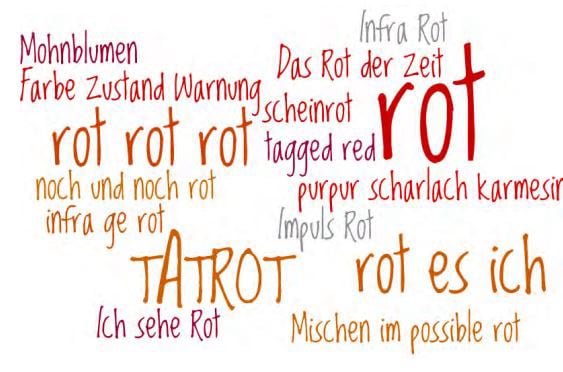 Infra Rot
Mohnblumen
Das Rot der Zeit
Farbe Zustand Warnung
scheinrot
rot
rot rot rot
tagged red
noch und noch rot
purpur scharlach karmesin
infra ge rot
Impuls Rot
TATROT
rot es ich
Ich sehe Rot
Mischen im possible rot